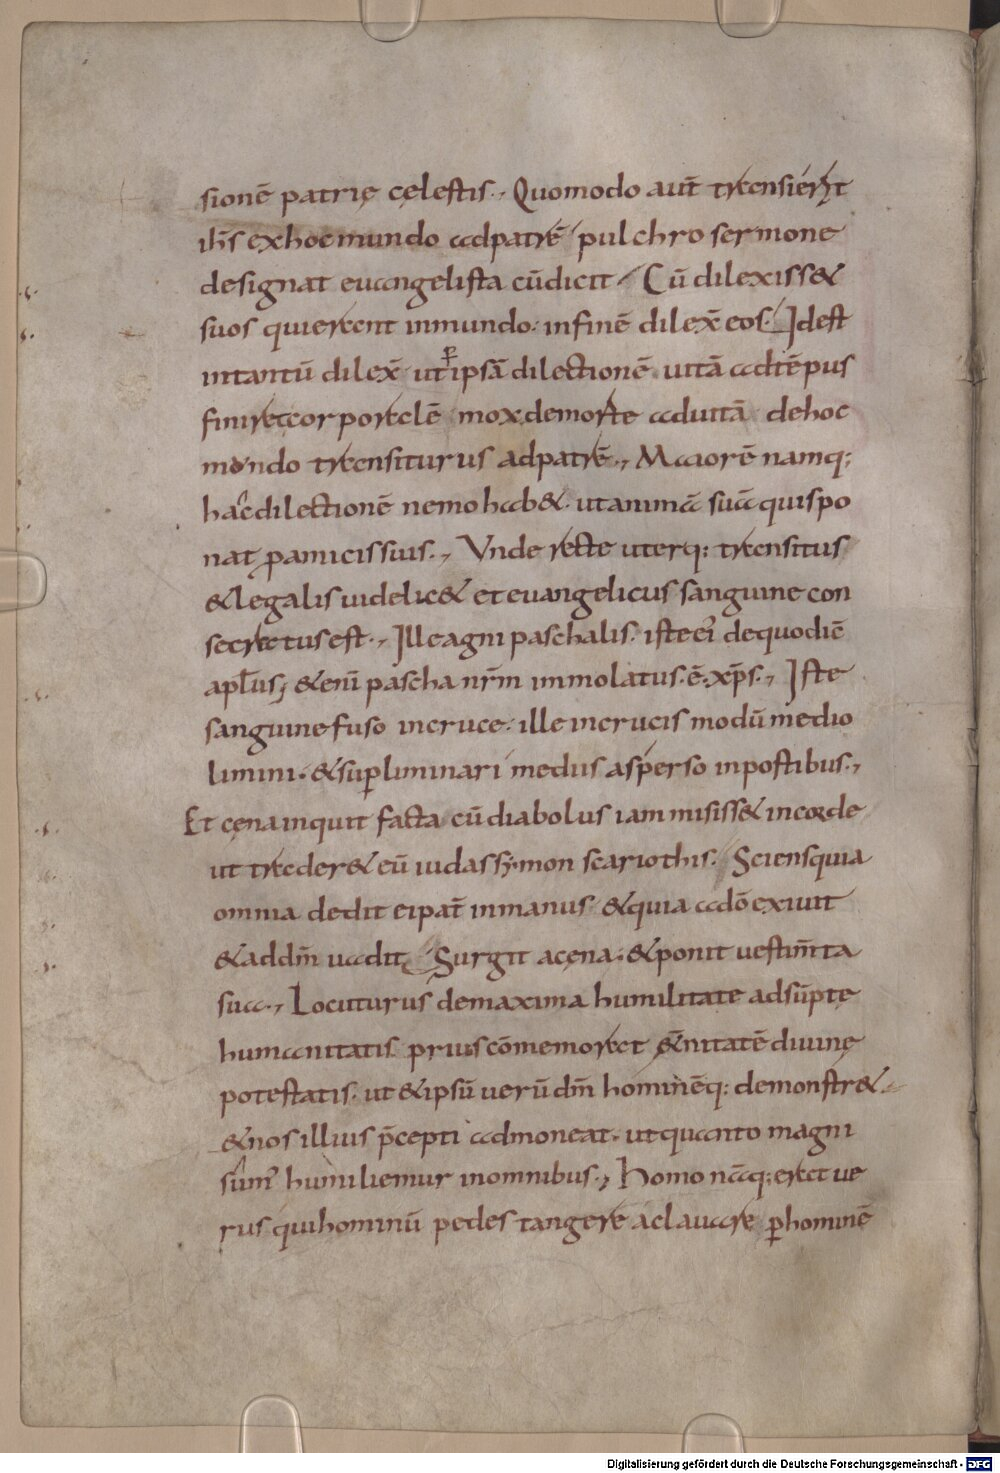 sionē patrię cęlestis., Quomodo aut̄ transierit
ih̄s exhoc mundo adpatrē pulchro sermone
designat euangelista cūdicit. Cū dilexiss&
suos quierant inmundo. infinē dilex̄ eos. Idest
intantū dilex̄ ut ꝑ ipsā dilectionē uitā adtēpus
finiret corporalē mox demorte aduitā dehoc
mundo transiturus adpatrē., Maiorē namq;
hac dilectionē nemo hab&. utanimā suā quispo
nat pamicis suis., Unde recte uterq: transitus
&legalis uidelic& et euangelicus sanguine con
secratus est., Ille agni paschalis. iste ei dequodic̄
apl̄us; &eni pascha nr̄m immolatus.ē.xp̄s., Iste
sanguine fuso incruce. ille incrucis modū medio
limini. &suꝑliminari medus asperso inpostibus.,
Et cęna inquit facta cū diabolus iam misiss& incorde
ut trader& eū iudas symon scariothis. Sciens quia
omnia dedit ei pat̄ inmanus &quia adō exiuit
&addm̄ uadit. Surgit acęna. &ponit uestim̄ta
sua., Locuturus demaxima humilitate adsūptę
humanitatis prius cōmemorat ęt̄nitatē diuinę
potestatis. ut &ipsū uerū dm̄ hominēq: demonstr&
&nos illius p̄cepti admoneat. utquanto magni
sum' humiliemur inomnibus., Homo nāq; erat ue
rus qui hominū pedes tangere aclauare ꝑhominē
Digitalisierung gefördert durch die Deutsche Forschungsgemeinschaft - DFG